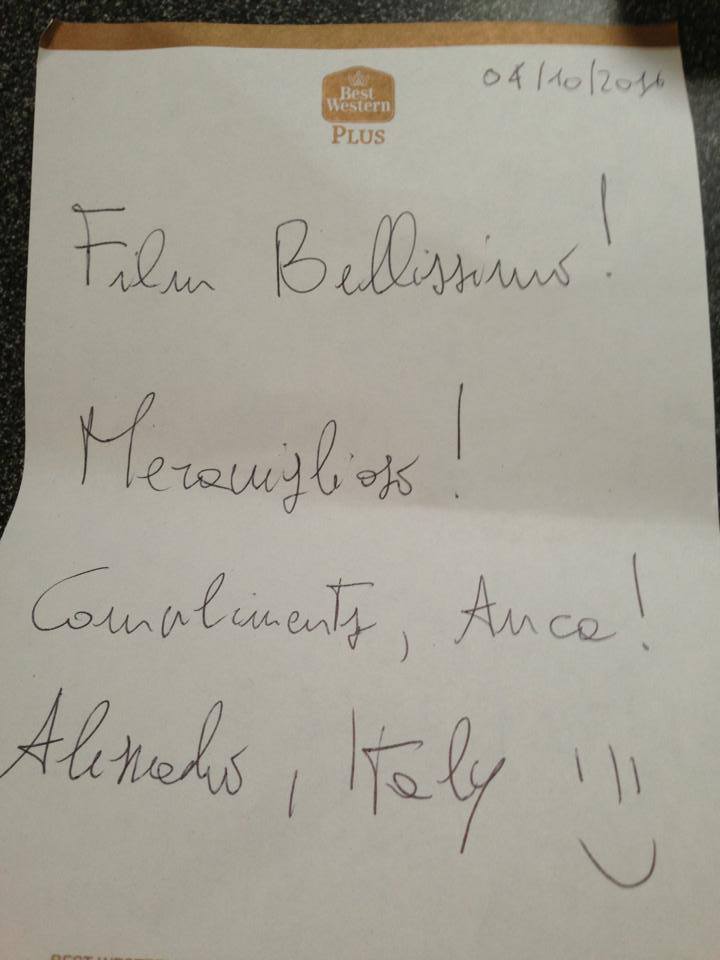 Best
Western
PLUS
04/10/2016
Film Bellissimo!
Meraviglioso!
Compliments, Anca!
Alessandro, Italy